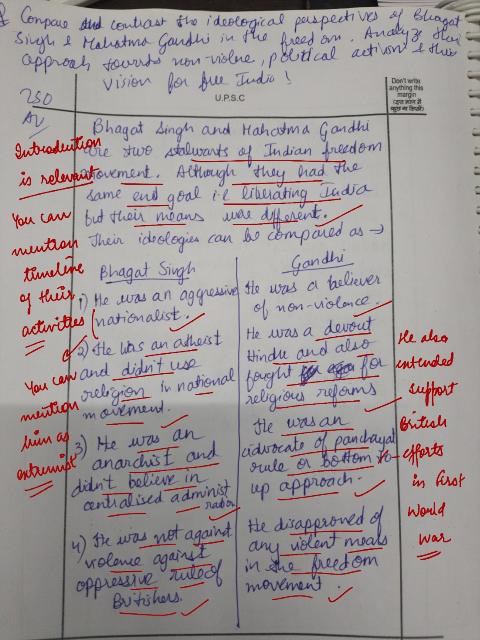 Q Compare and contrast the ideological perspectives of Bhagat
Singh & Mahatma Gandhi in the freedom. Analyze their
approach towards non-violence, political activism & their
vision for free India!
250
U.P.S.C
Don't write
anything this
margin
Bhagat Singh and Mahatma Gandhi
are two stalwarts of Indian freedom
movement. Although they had the
same end goal i.e liberating India
but their means were different.
Their ideologies can be compared as →
Introduction
is relevant
You can
mention
timeline
of their
activities
You can
mention
him as
extremist
Bhagat Singh
1) He was an aggressive
nationalist.
2) He was an atheist
and didn't use
religion in national
movement.
3) He was an
anarchist and
didn't believe in
centralised administ
ration
4) He was not against
violence against
oppressive rule of
Britishers.
Gandhi
He was a believer
of non-violence.
He was a devout
Hindu and also
fought for
religious reforms
He was an
advocate of panchayat
rule or bottom to
up approach.
He disapproved of
any violent means
in the freedom
movement.
He also
intended
support
British
efforts
in first
world
war